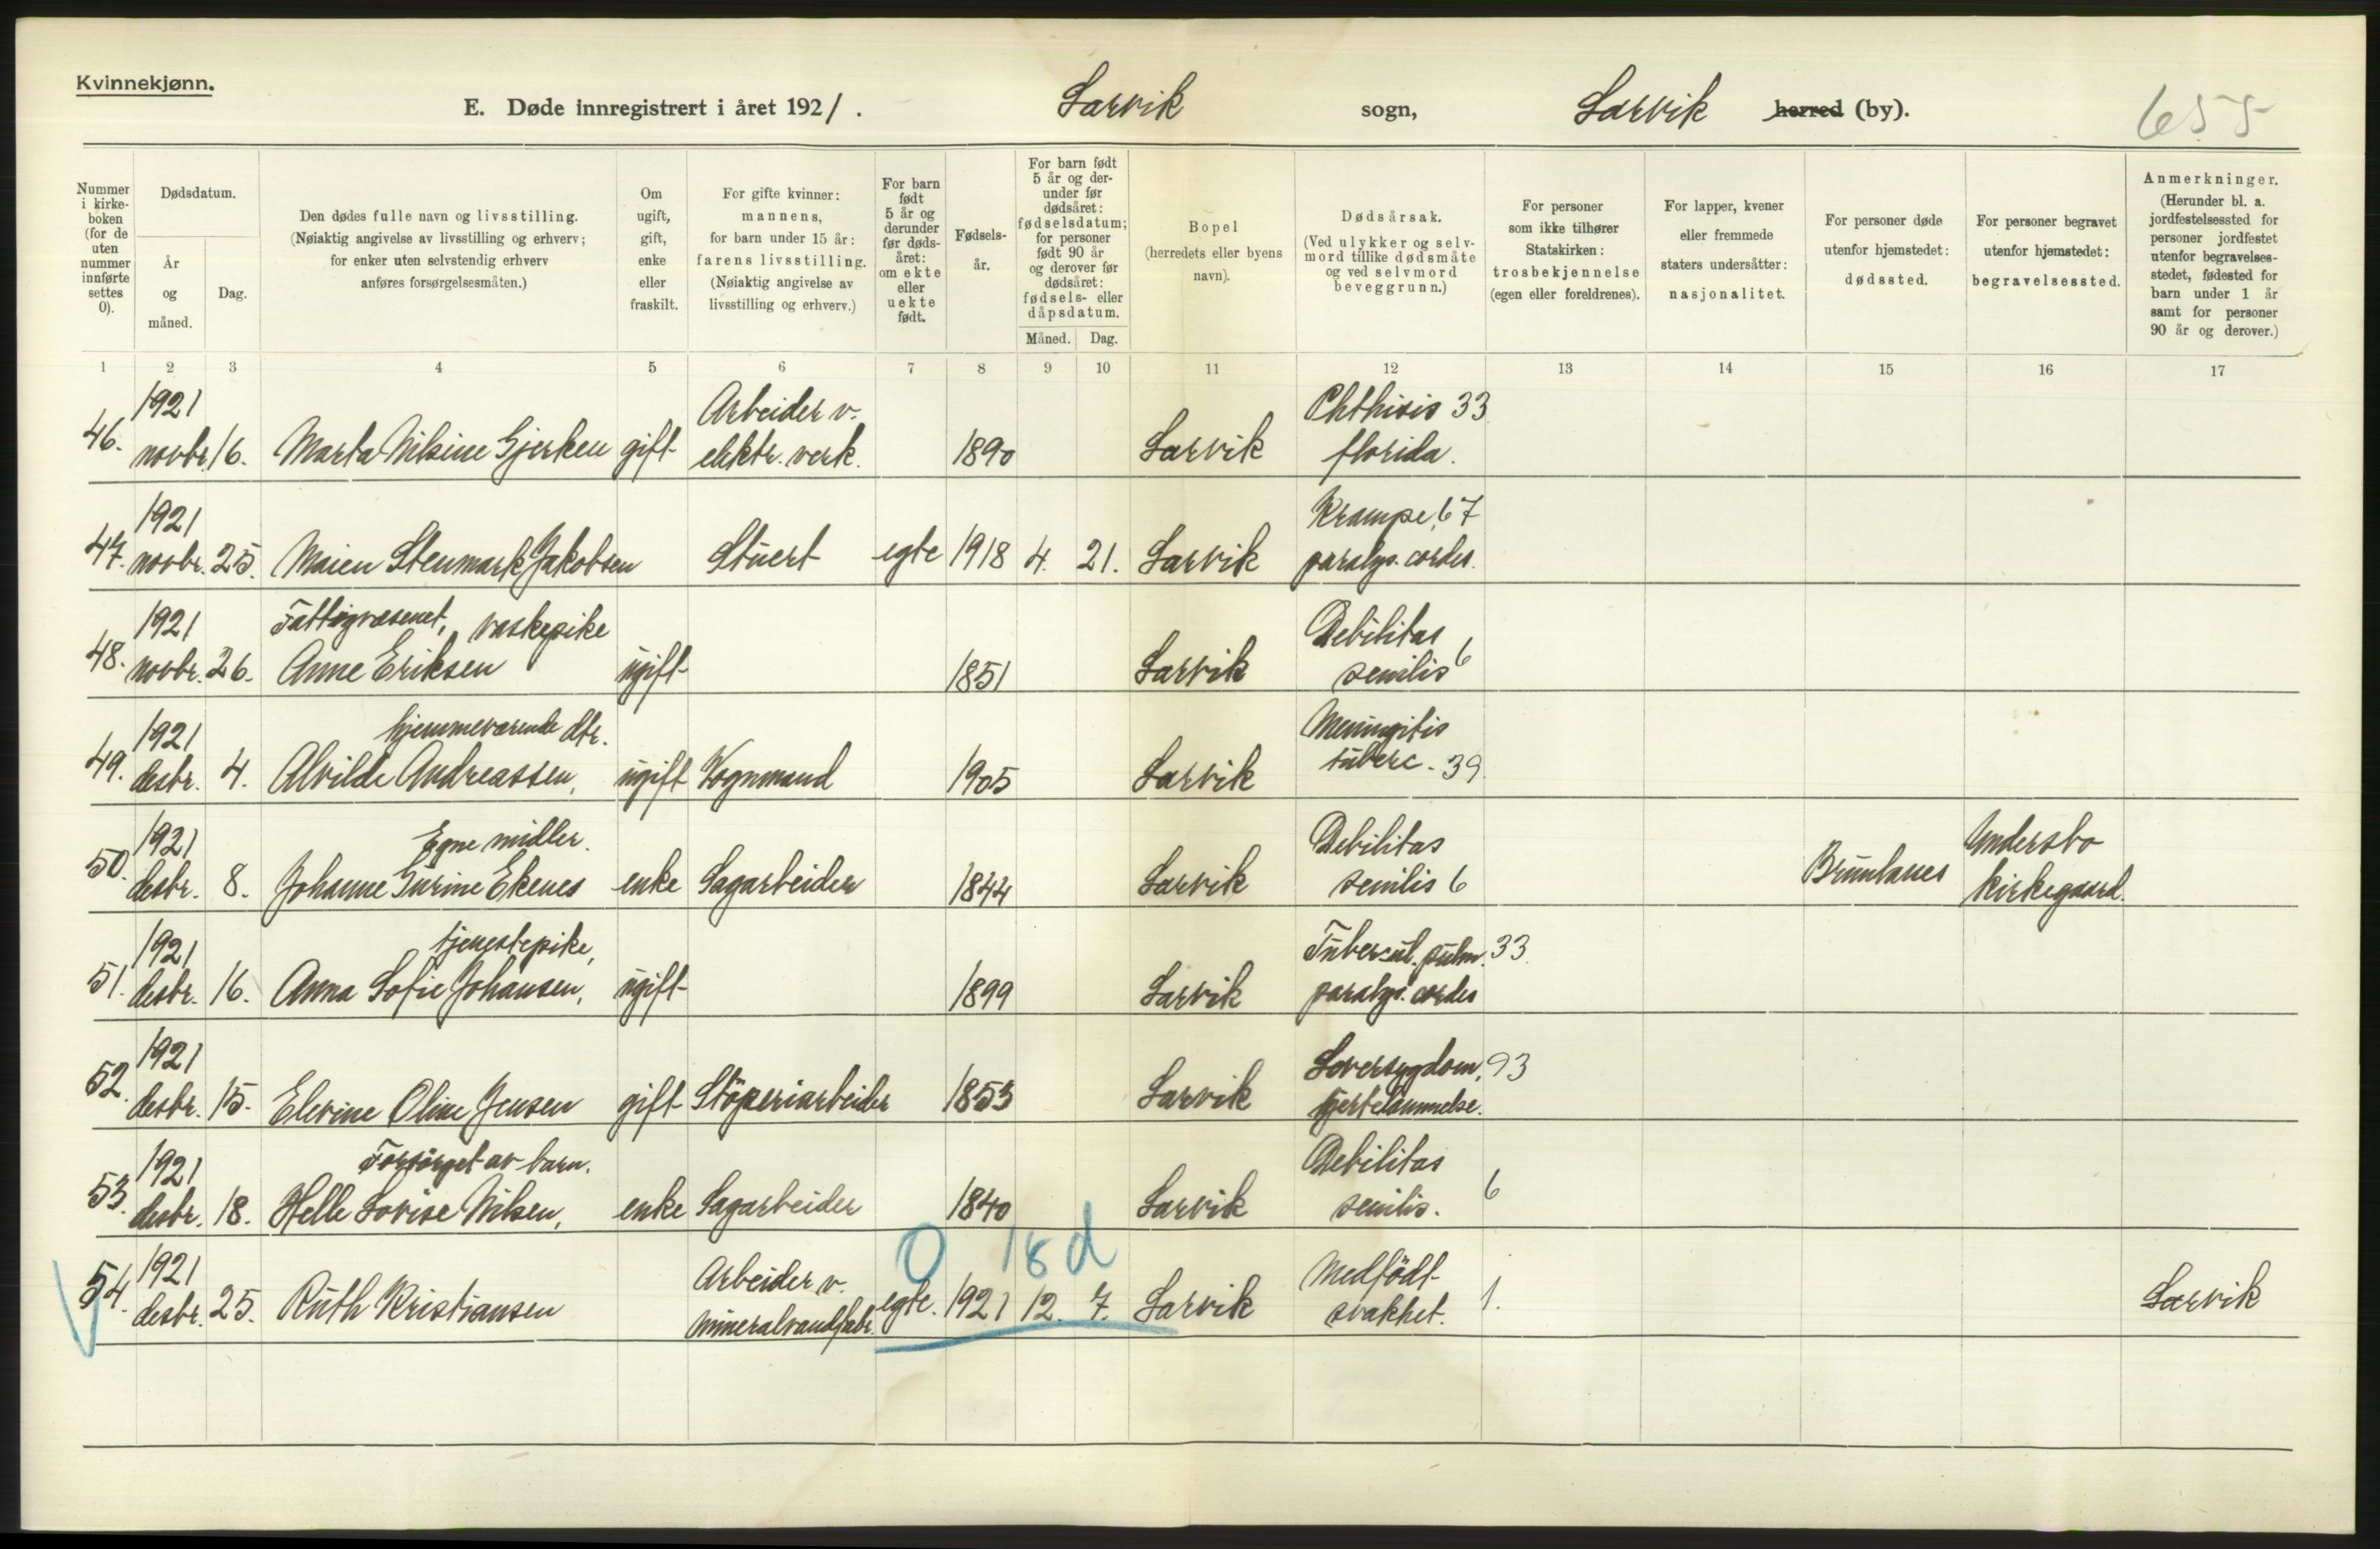 Kvinnekjønn.
E. Døde innregistrert i året 1921. Larvik sogn, Larvik herred (by). 655
Nummer i kirke-boken (for de uten nummer innførte settes 0).
Dødsdatum.
År og måned.
Dag.
Den dødes fulle navn og livsstilling.
(Nøiaktig angivelse av livsstilling og erhverv;
for enker uten selvstendig erhverv
anføres forsørgelsesmåten.)
Om ugift, gift, enke eller fraskilt.
For gifte kvinner:
mannens,
for barn under 15 år:
farens livsstilling.
(Nøiaktig angivelse av
livsstilling og erhverv.)
For barn født 5 år og derunder før døds-året: om ekte eller uekte født.
Fødsels-år.
For barn født 5 år og der-under før dødsåret: fødselsdatum; for personer født 90 år og derover før dødsåret: fødsels- eller dåpsdatum.
Måned. Dag.
Bopel
(herredets eller byens
navn).
Dødsårsak.
(Ved ulykker og selv-
mord tillike dødsmåte
og ved selvmord
beveggrunn.)
For personer
som ikke tilhører
Statskirken:
trosbekjennelse
(egen eller foreldrenes).
For lapper, kvener
eller fremmede
staters undersåtter:
nasjonalitet.
For personer døde
utenfor hjemstedet:
dødssted.
For personer begravet
utenfor hjemstedet:
begravelsessted.
Anmerkninger.
(Herunder bl. a.
jordfestelsessted for
personer jordfestet
utenfor begravelses-
stedet, fødested for
barn under 1 år
samt for personer
90 år og derover.)
1 2 3 4 5 6 7 8 9 10 11 12 13 14 15 16 17
1921 Arbeider v. Phthisis 33
46. novbr. 16. Marta Nilsine Gjerken gift elektr. verk. 1890 Larvik florida.
1921 Krampe, 67
47. novbr. 25. Maien Stenmark Jakobsen Stuert egte 1918 4. 21. Larvik paralys. cordis.
1921 Fattigvæsenet, vaskepike Debilitas
48. novbr. 26. Anne Eriksen ugift 1851 Larvik senilis 6
1921 hjemmeværende dtr. Meningitis
49. desbr. 4. Alvilde Andreassen, ugift Vognmand 1905 Larvik tuberc. 39.
1921 Egne midler. Debilitas Undersbo
50. desbr. 8. Johanne Gurine Ekenes enke Sagarbeider 1844 Larvik senilis 6 Brunlanes kirkegaard.
1921 tjenestepike, Tubercul. pulm. 33.
51. desbr. 16. Anna Sofie Johansen, ugift 1899 Larvik paralys. cordis
1921 Leversygdom, 93
52. desbr. 15. Elevine Oline Jensen gift Støperiarbeider 1853 Larvik hjertelammelse.
1921 Forsørget av barn. Debilitas
53. desbr. 18. Helle Lovise Nilsen, enke Sagarbeider 1840 Larvik senilis. 6
0 18 d
1921 Arbeider v. Medfødt
54. desbr. 25. Ruth Kristiansen mineralvandfabr. egte. 1921 12. 7. Larvik svakhet. 1. Larvik